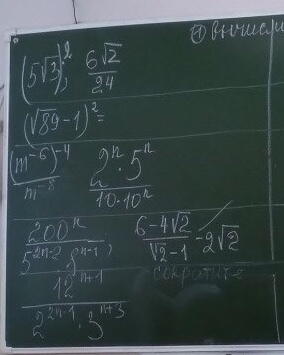 ① Вычисли
(5√3)²; 6√2/24
(√89-1)²=
(m⁻⁶)⁻⁴/m⁻⁸ 2ⁿ·5ⁿ/10·10ⁿ
200ⁿ/5²ⁿ⁻²·8ⁿ⁻¹; 6-4√2/√2-1 -2√2
сократите
12ⁿ⁺¹/2²ⁿ⁻¹·3ⁿ⁺³